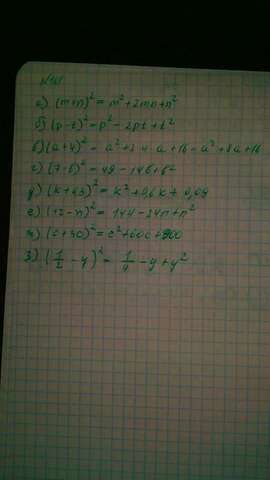 а) (m+n)² = m²+2mn+n²
б) (p-t)² = p² - 2pt+t²
в) (a+4)² = a²+2·4·a+16 = a²+8a+16
г) (7-b)² = 49 - 14b+b²
д) (k+0,3)² = k²+0,6k+0,09
е) (12-n)² = 144 - 24n+n²
ж) (c+30)² = c²+60c+900
з) (1/2 - y)² = 1/4 - y+y²